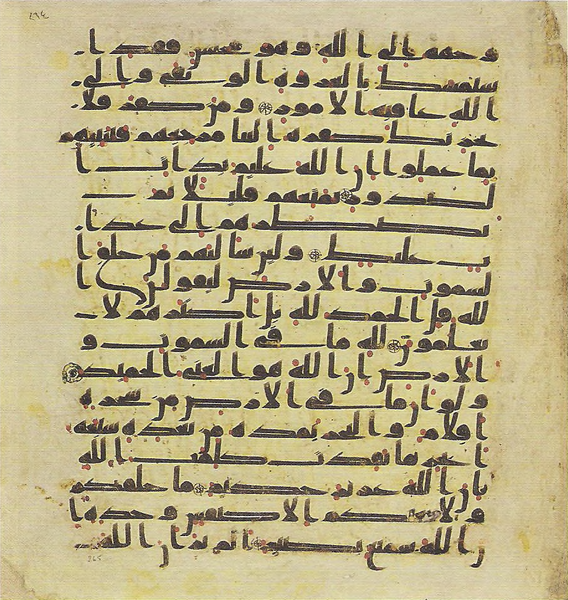 وجهه الى الله وهو محسن فقد ا
ستمسك بالعروة الوثقى والى
الله عاقبة الامور ومن كفر فلا
يحزنك كفره الينا مرجعهم فننبئهم
بما عملوا ان الله عليم بذات ا
لصدور نمتعهم قليلا ثم
نضطرهم الى عذا
ب غليظ ولئن سالتهم من خلق ا
لسموت والارض ليقولن ا
لله قل الحمد لله بل اكثرهم لا
يعلمون لله ما في السموت و
الارض ان الله هو الغني الحميد
ولو انما في الارض من شجرة
اقلام والبحر يمده من بعده سبعة
ابحر ما نفدت كلمت الله
ان الله عزيز حكيم ما خلقكم
ولا بعثكم الا كنفس وحدة ا
ن الله سميع بصير الم تر ان الله